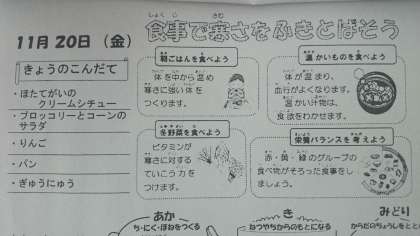 食事で寒さをふきとばそう
11月20日（金）
きょうのこんだて
・ほたてがいの
クリームシチュー
・ブロッコリーとコーンの
サラダ
・りんご
・パン
・ぎゅうにゅう
朝ごはんを食べよう
体を中から温め
寒さに強い体を
つくります。
温かいものを食べよう
体が温まり、
血行がよくなります。
温かい汁物は、
食欲をわかせます。
冬野菜を食べよう
ビタミンが
寒さに対する
ていこう力を
つけます。
栄養バランスを考えよう
赤・黄・緑のグループの
食べ物がそろった食事をし
ましょう。
あか
ち・にく・ほねをつくる
き
ねつやちからのもとになる
みどり
からだのちょうしをとと